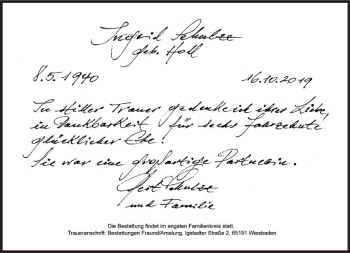 Ingrid Schulze
geb. Holl
8.5.1940 16.10.2019
In stiller Trauer gedenke ich ihrer Liebe,
in Dankbarkeit für sechs Jahrzehnte
glücklicher Ehe!
Sie war eine großartige Partnerin.
Gert Schulze
und Familie
Die Bestattung findet im engsten Familienkreis statt.
Traueranschrift: Bestattungen Fraund/Amelung, Igstadter Straße 2, 65191 Wiesbaden